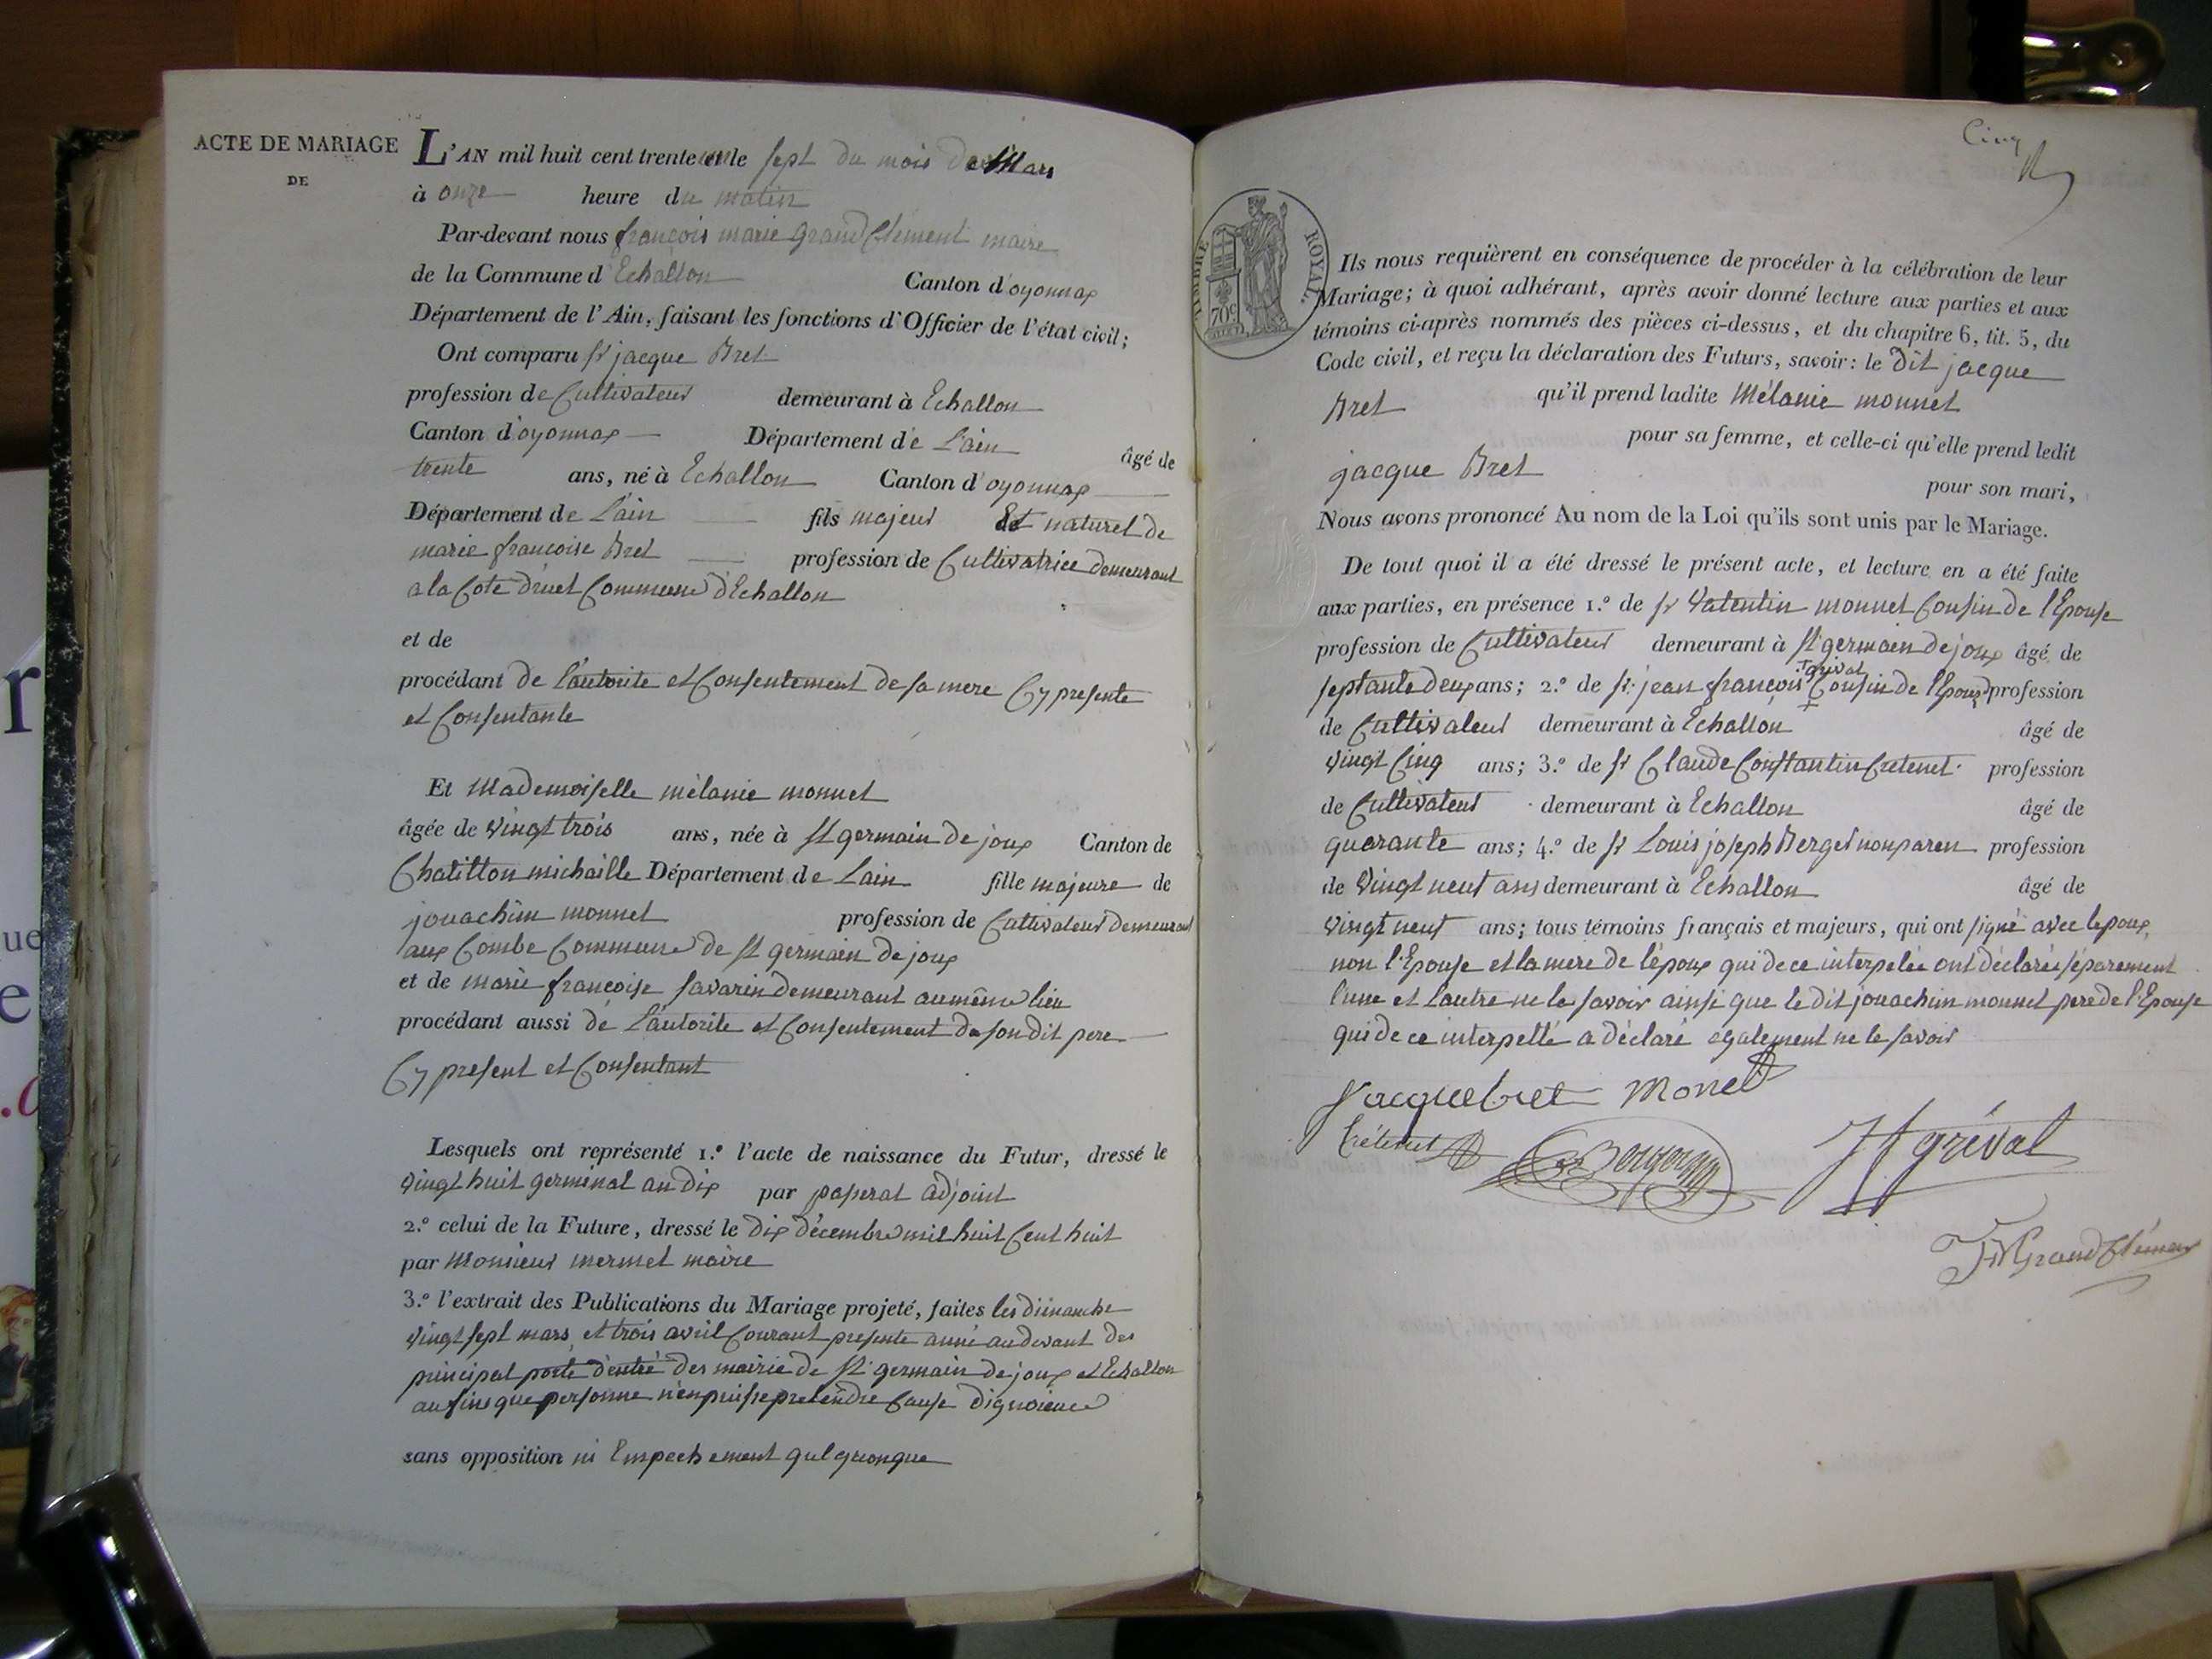 ACTE DE MARIAGE
DE
L'AN mil huit cent trente un le sept du mois de Mars
à onze heure du matin
Par-devant nous françois marie grandclément maire
de la Commune d'Echallon Canton d'oyonnax
Département de l'Ain, faisant les fonctions d'Officier de l'état civil;
Ont comparu sr jacque Bret
profession de Cultivateur demeurant à Echallon
Canton d'oyonnax Département de L'ain âgé de
trente ans, né à Echallon Canton d'oyonnax
Département de L'ain fils majeur et naturel de
marie francoise Bret profession de Cultivatrice demeurant
a la Cote Commune d'Echallon
et de
procédant de l'autorite et Consentement de sa mere Cy presente
et Consentante
Et Mademoiselle mélanie monnet
âgée de vingt trois ans, née à st germain de joux Canton de
Chatillon michaille Département de Lain fille majeure de
jouachim monnet profession de Cultivateur demeurant
aux Combe Commune de st germain de joux
et de marie francoise savarin demeurant au même lieu
procédant aussi de l'autorite et Consentement de son dit pere
Cy present et Consentant
Lesquels ont représenté 1.º l'acte de naissance du Futur, dressé le
vingt huit germinal an dix par paperat adjoint
2.º celui de la Future, dressé le dix décembre mil huit Cent huit
par Monsieur mermet maire
3.º l'extrait des Publications du Mariage projeté, faites les dimanche
vingt sept mars et trois avril Courant presente anné au devant des
principal porte d'entré des mairie de St germain de joux et Echallon
au fins que personne n'en puisse pretendre Cause d'ignoience
sans opposition ni Empechement quelquonque
Cinq
TIMBRE ROYAL.
70c
Ils nous requièrent en conséquence de procéder à la célébration de leur
Mariage; à quoi adhérant, après avoir donné lecture aux parties et aux
témoins ci-après nommés des pièces ci-dessus, et du chapitre 6, tit. 5, du
Code civil, et reçu la déclaration des Futurs, savoir: le dit jacque
Bret qu'il prend ladite Mélanie monnet
pour sa femme, et celle-ci qu'elle prend ledit
jacque Bret pour son mari,
Nous avons prononcé Au nom de la Loi qu'ils sont unis par le Mariage.
De tout quoi il a été dressé le présent acte, et lecture en a été faite
aux parties, en présence 1.º de sr Valentin monnet Cousin de l'Epouse
profession de Cultivateur demeurant à St germain de joux âgé de
septante deux ans; 2.º de sr jean françois gréval Cousin de l'Epoux profession
de Cultivateur demeurant à Echallon âgé de
vingt Cinq ans; 3.º de sr Claude Constantin Cretenet profession
de Cultivateur demeurant à Echallon âgé de
quarante ans; 4.º de sr Louis joseph Berger non paren profession
de vingt neuf ans demeurant à Echallon âgé de
vingt neuf ans; tous témoins français et majeurs, qui ont signé avec lepoux,
non l'Epouse et la mere de l'époux qui de ce interpelée ont déclarée séparement
l'une et l'autre ne le savoir ainsi que le dit jouachim monnet pere de l'Epouse
qui de ce interpellé a déclaré également ne le savoir
Jacque bret Monet
Crétenet Berger JF gréval
FM Grandclément